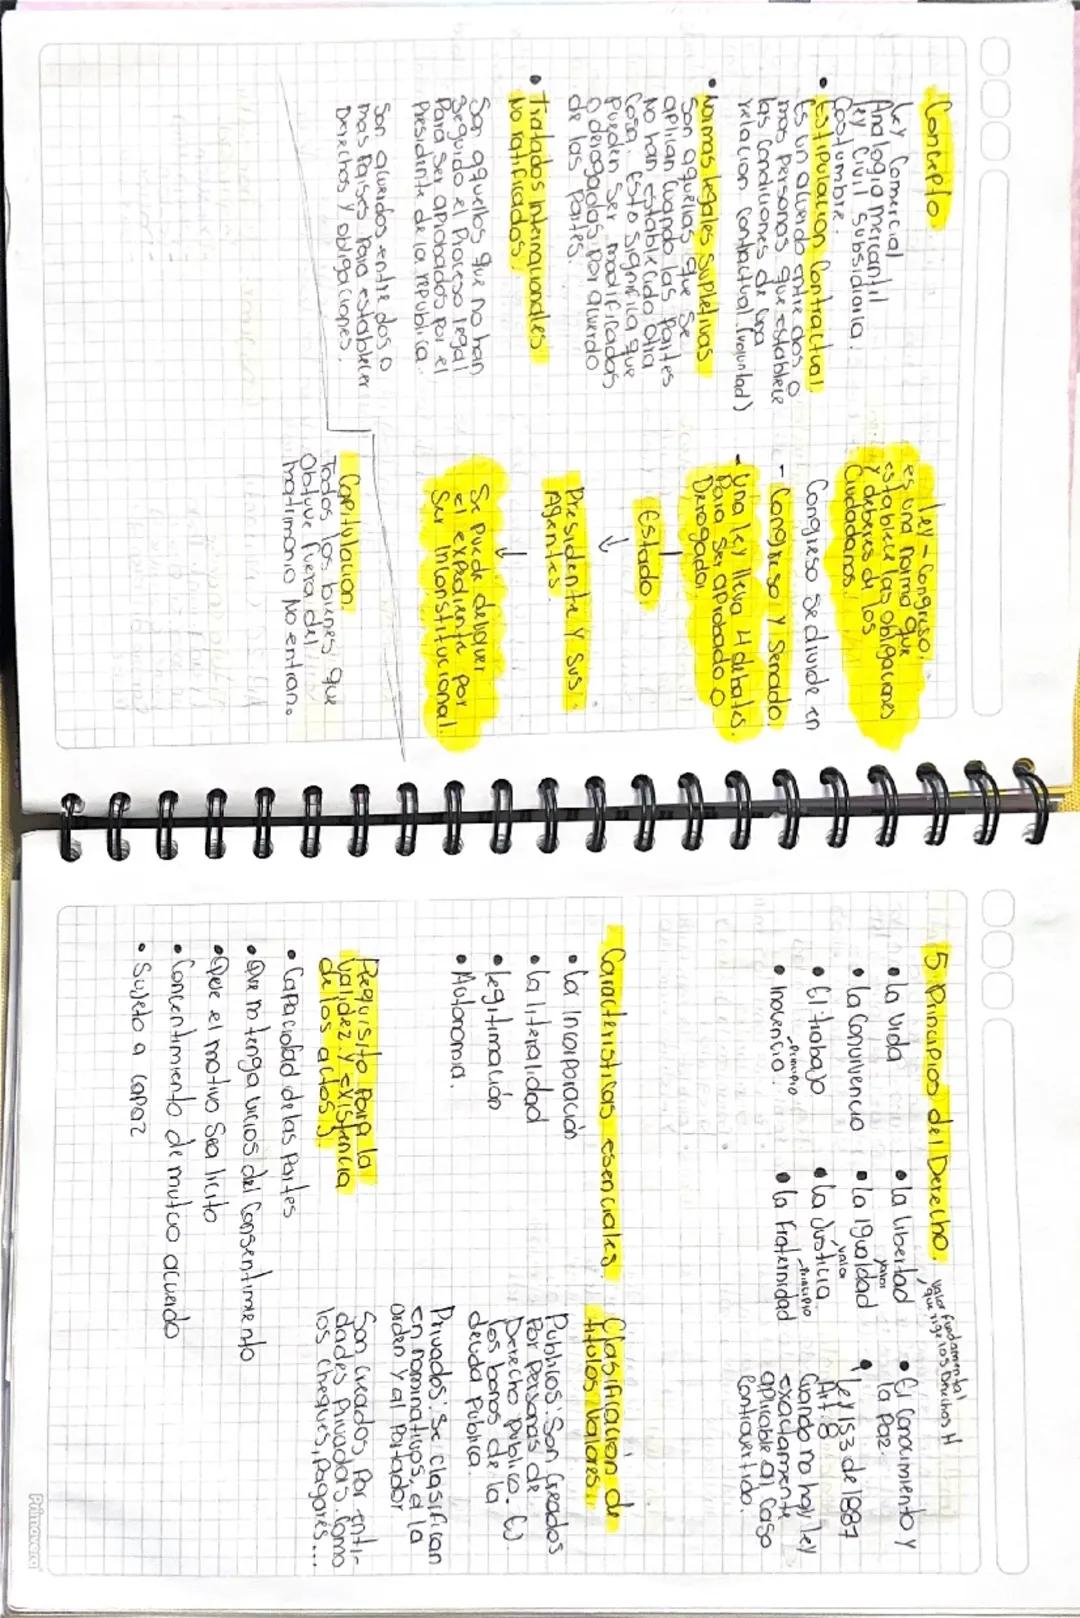 Concepto.
Ley Comercial
Analogia mercantil
Ley Civil Subsidiaria.
Costumbre.
• Estipulacion Contractual.
Es un acuerdo entre dos o
mas personas que establece
las condiciones de una
relacion contractual. (voluntad)
• Normas legales Supletivas
Son aquellas que se
aplican cuando las partes
No han establecido otra
Cosa. Esto significa que
pueden ser modificadas
o derogadas por acuerdo
de las partes.
• Tratados Internacionales
No ratificados.
Son aquellos que no han
Seguido el Proceso legal
Para ser aprobados por el
Presidente de la republica.
Son acuerdos entre dos o
mas Paises para establecer
Derechos y obligaciones.
Ley - Congreso.
es una norma que
establece las obligaciones
y deberes de los
Ciudadanos.
Congreso se divide en
- Congreso y Senado.
- Una ley lleva 4 debates.
Para ser aprobado o
Derogada.
Estado.
↓
Presidente y sus
Agentes.
↓
Se Puede devolver
el expediente por
Ser Inconstitucional.
Capitulacion.
Todos los bienes que
Obtuve fuera del
matrimonio No entran.
5 Principios del Derecho. valor fundamental
que rige los Derechos H
• La vida
• La Convivencia
• El trabajo
Principio
• Inocencia.
• La libertad
valor
• La Igualdad
valor
• La Justicia.
Principio
• La Fraternidad
• El Conocimiento y
la Paz.
• Ley 153 de 1887
Art. 8
Cuando no hay ley
exactamente
aplicable al Caso
Controvertido.
Caracteristicas esenciales.
• La Incorporación
• La literalidad
• Legitimación
• Autonoma.
Clasificacion de
titulos Valores.
Publicos: Son Creados
Por Personas de
Derecho Publico. EJ
los bonos de la
deuda Publica.
Privados: Se Clasifican
en nominativos, a la
orden y al Portador
Son Creados Por enti-
dades Privadas. Como
los Cheques, Pagares...
Requisito Para la
Validez y existencia
de los actos J.
• Capacidad de las Partes
• Que no tenga vicios del Consentimiento
• Que el motivo Sea licito
• Concentimiento de mutuo acuerdo
• Sujeto a capaz
Primavera